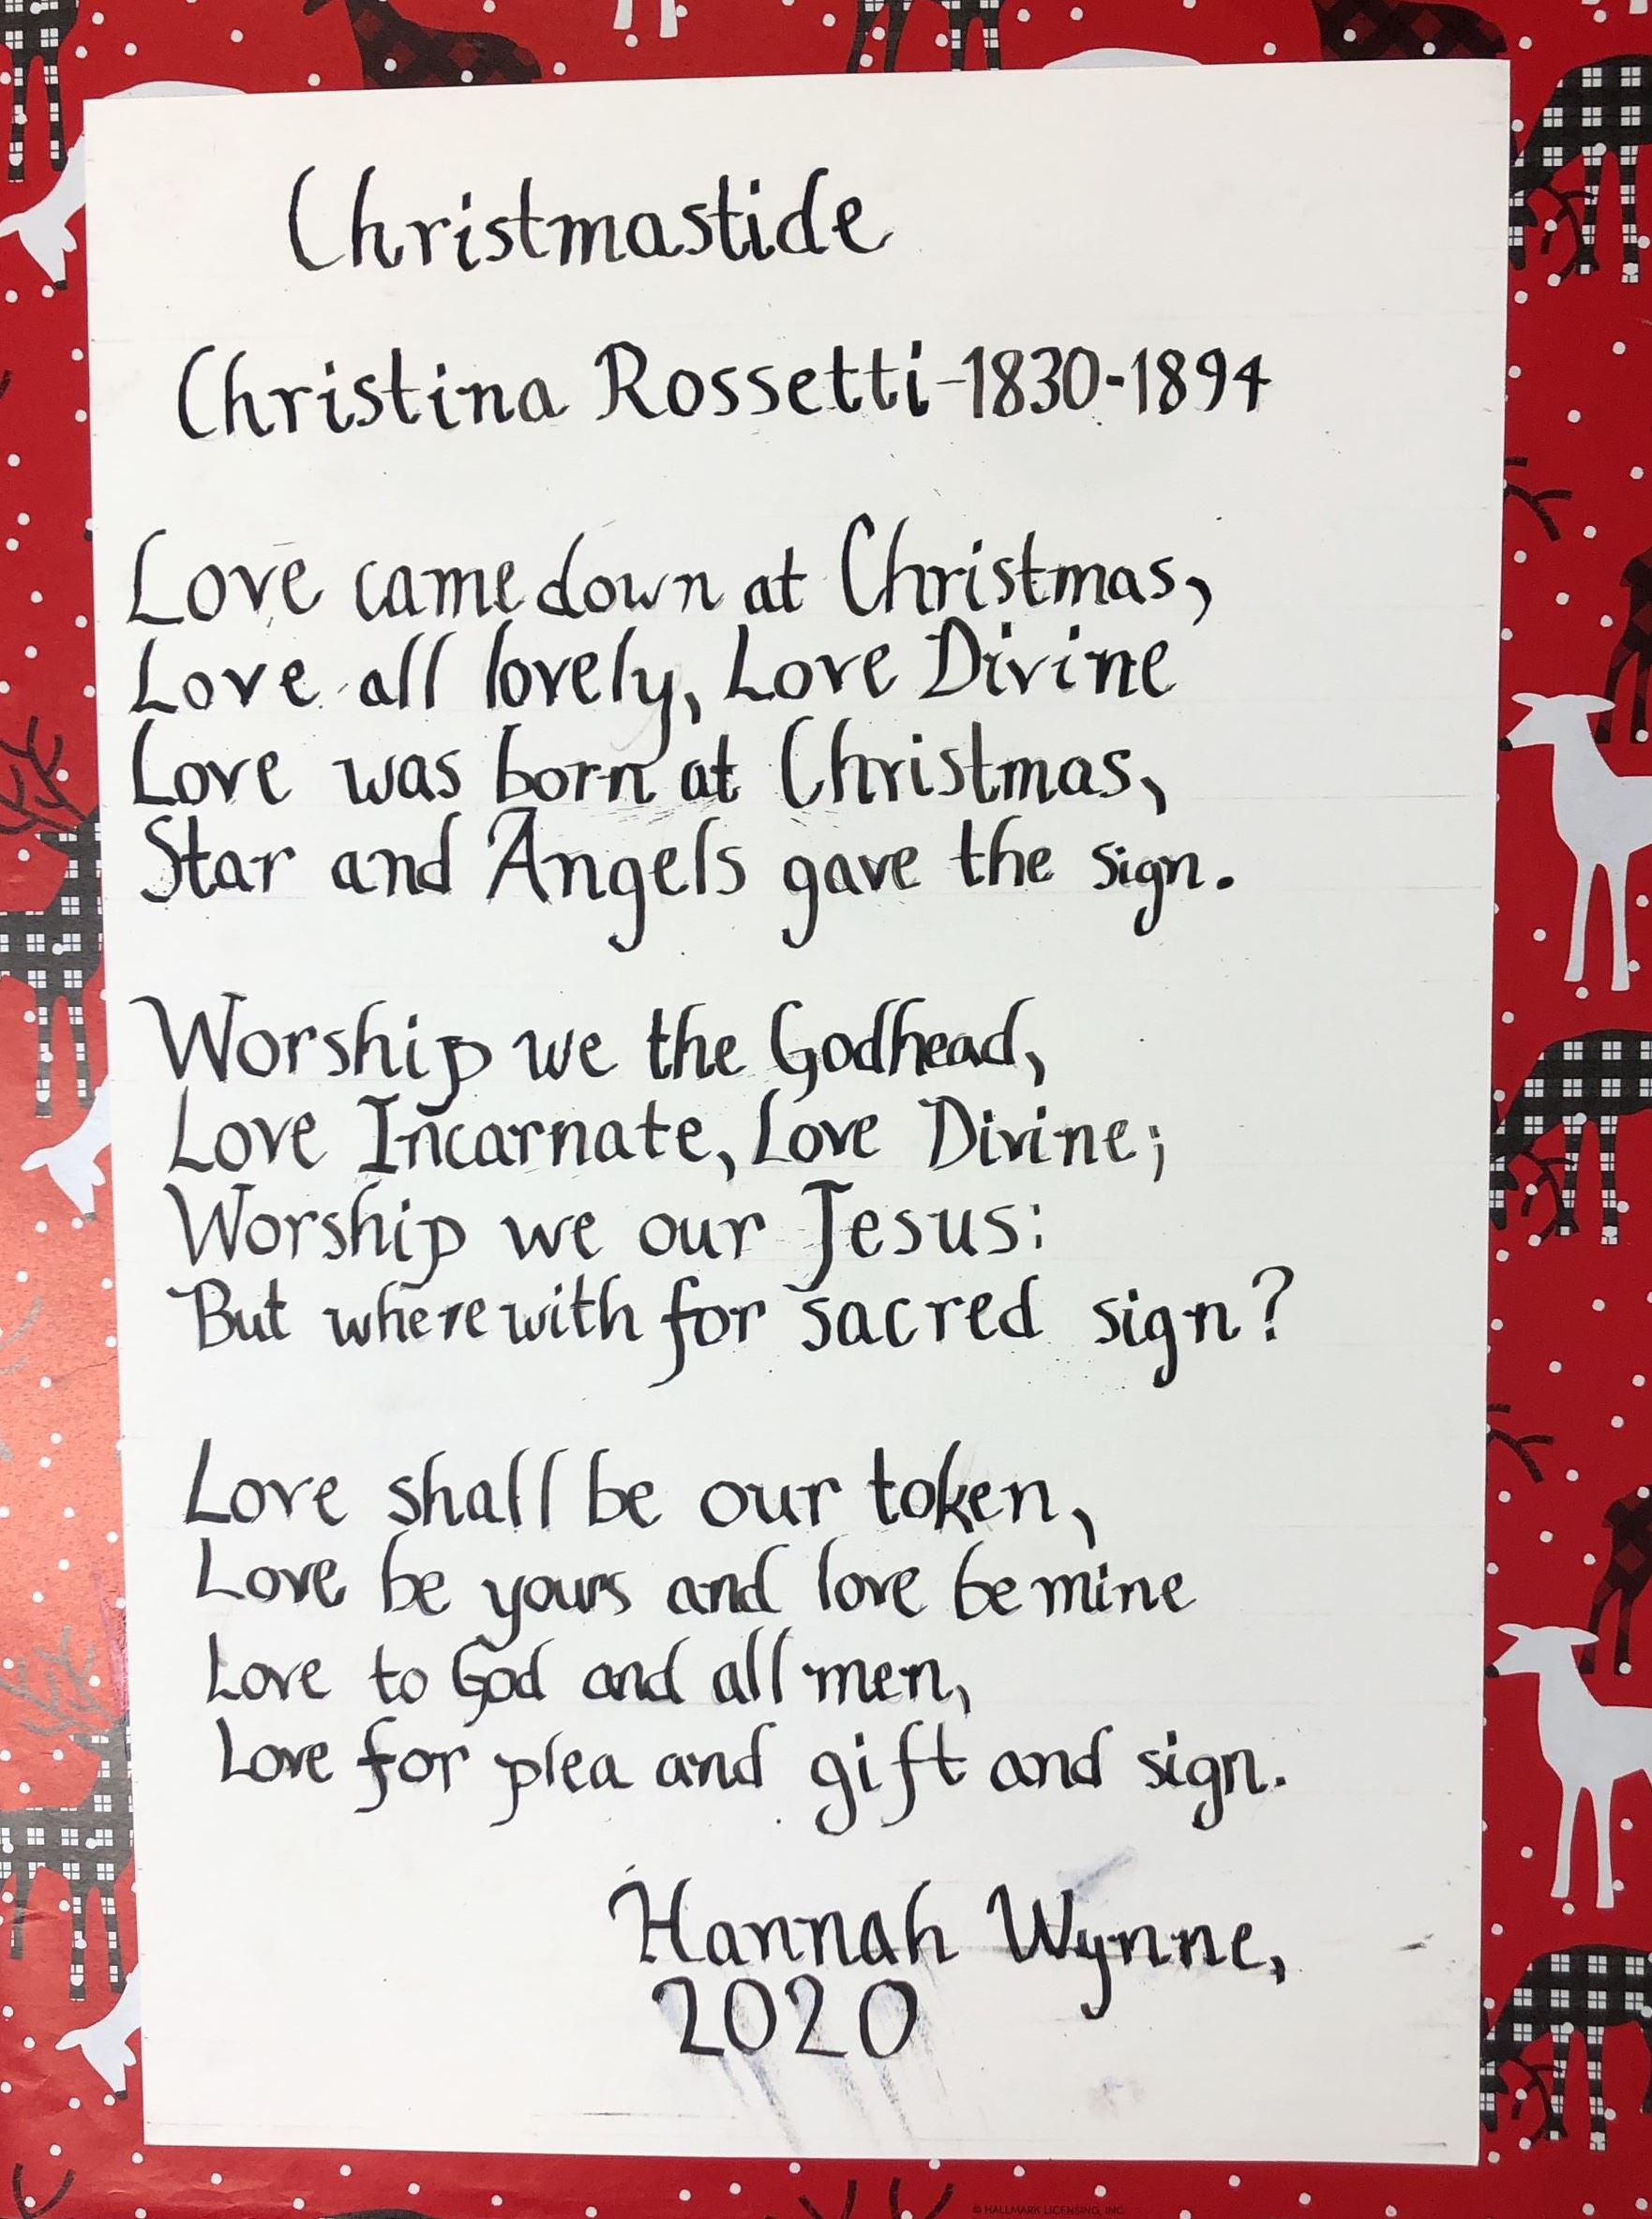 Christmastide
Christina Rossetti-1830-1894
Love came down at Christmas,
Love all lovely, Love Divine
Love was born at Christmas,
Star and Angels gave the sign.
Worship we the Godhead,
Love Incarnate, Love Divine;
Worship we our Jesus:
But wherewith for sacred sign?
Love shall be our token,
Love be yours and love be mine
Love to God and all men,
Love for plea and gift and sign.
Hannah Wynne,
2020
© HALLMARK LICENSING, INC.